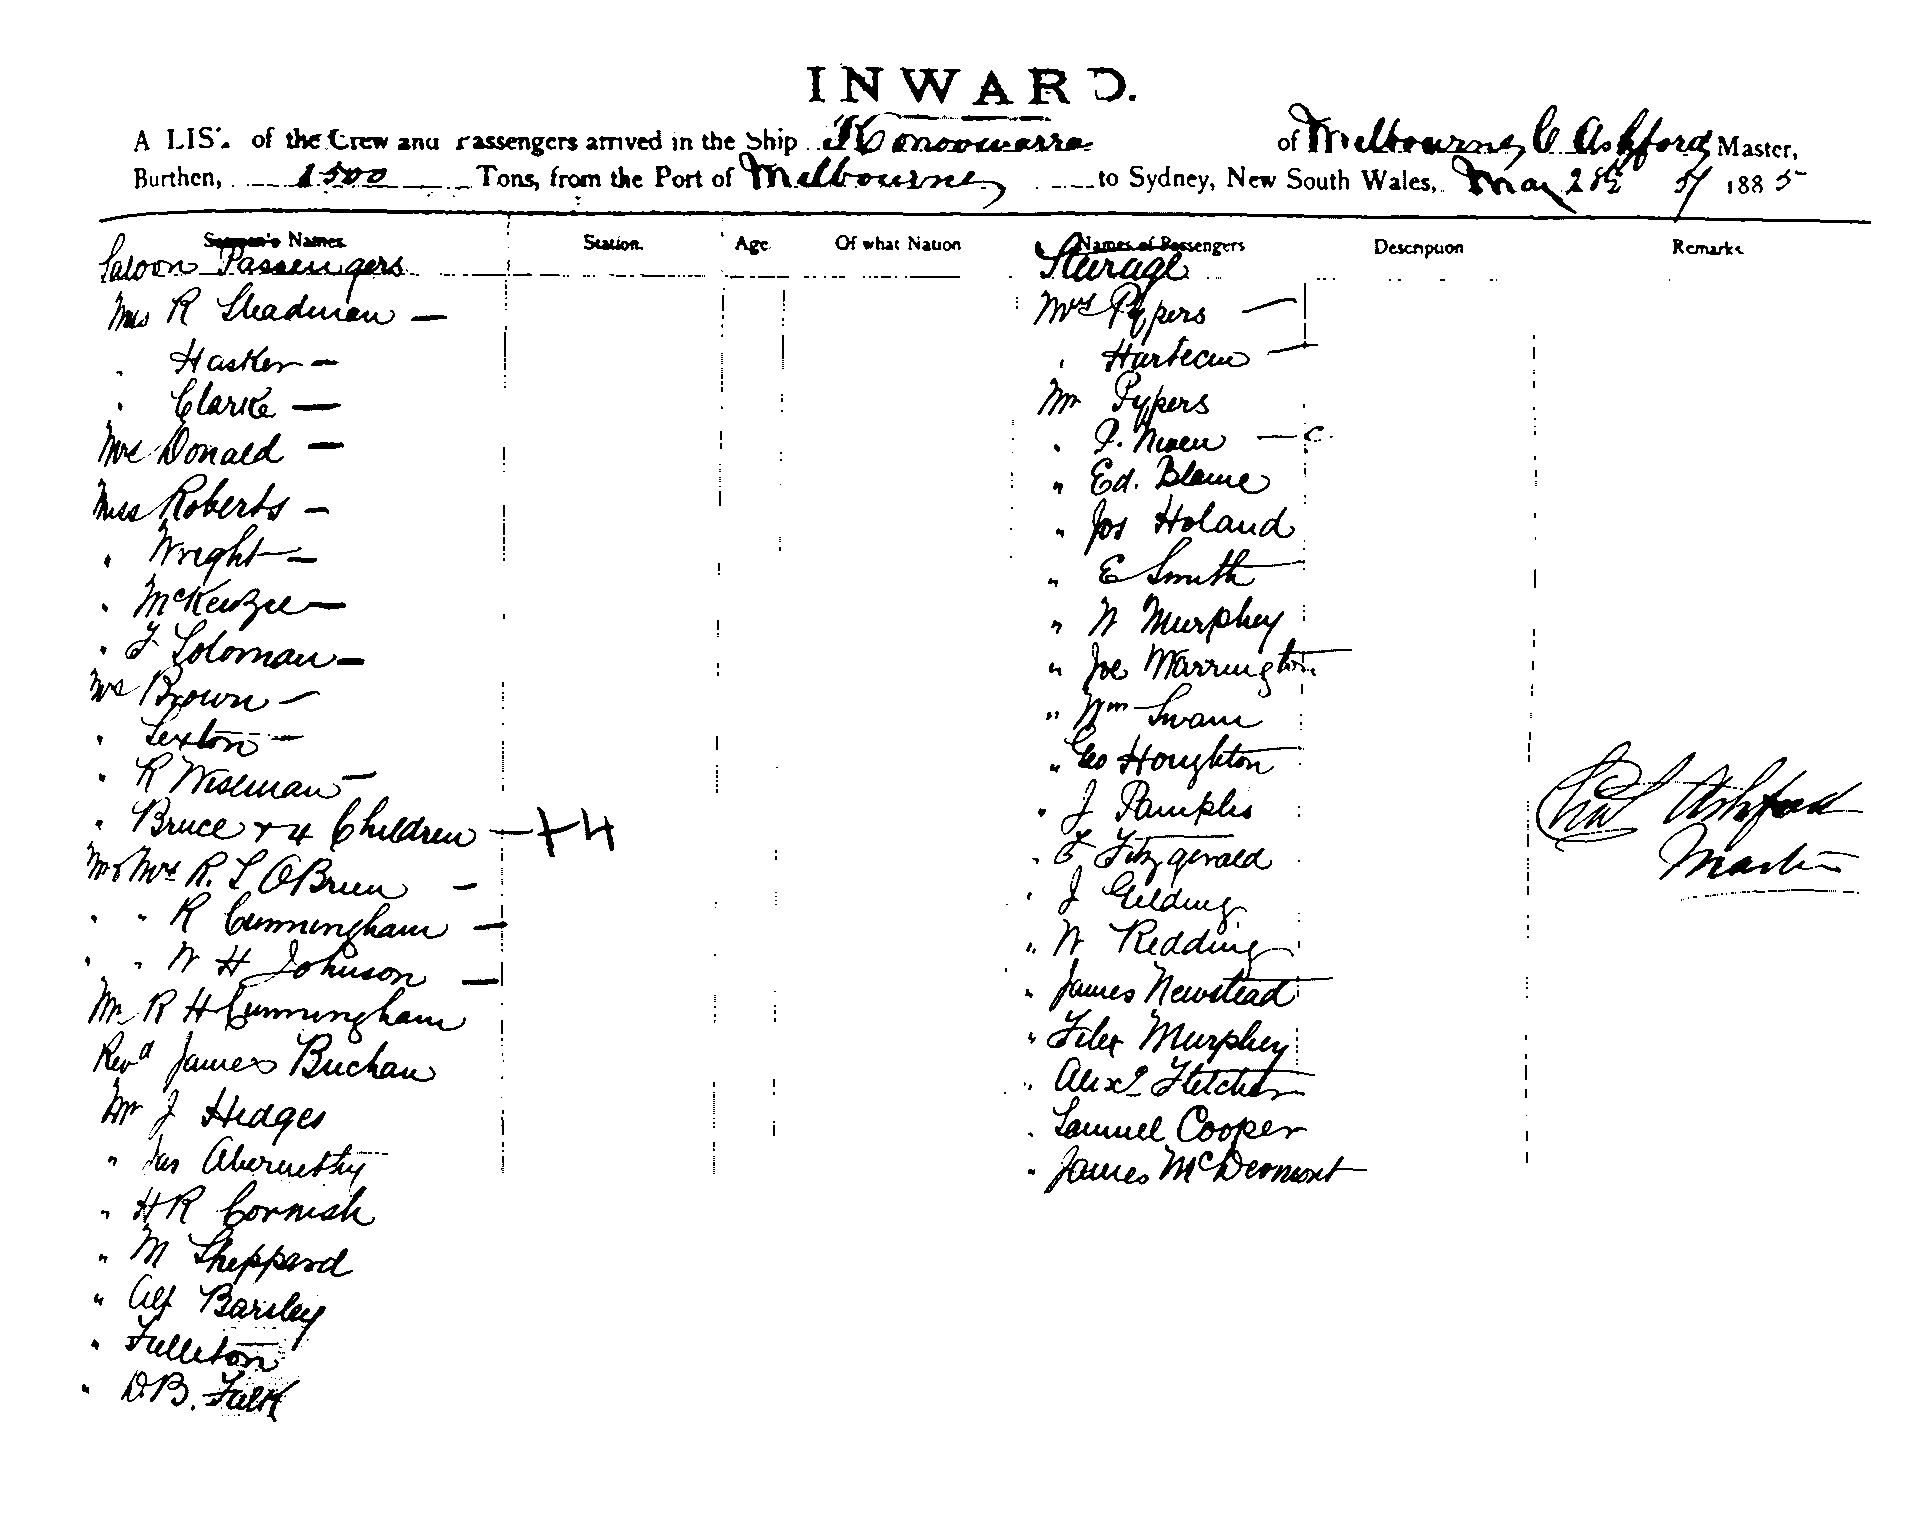 INWARD.
A LIST of the Crew and Passengers arrived in the Ship Konoowarra of Melbourne, C Ashford, Master,
Burthen, 1500 Tons, from the Port of Melbourne, to Sydney, New South Wales, May 28th 5/ 1885
Seamen's Names. Station. Age Of what Nation Names of Passengers Description Remarks
Saloon Passengers
Mrs R Steadman —
" Hasker —
" Clarke —
Mrs Donald —
Miss Roberts —
" Wright —
" McKenzie —
" F Soloman —
Mrs Brown —
" Sexton —
" R Wiseman —
" Bruce + 4 Children — +4
Mr & Mrs R. L OBrien —
" " R Cunningham —
" " W H Johnson —
Mr R H Cunningham
Revd James Buchan
Mr J Hedges
" Jas Abernethy
" HR Cornish
" M Sheppard
" Alf Barsley
" Fulleton
" D.B. Falk
Sturage
Mrs Pypers —
" —
Mr Pypers
" P. Nixen — c
" Ed. Blame
" Jos Holand
" E Smith
" W Murphey
" Joe Warrington
" Wm Swain
" Geo Houghton
" J
" F Fitzgerald
" J Gilding
" W Redding
" James Newstead
" Filex Murphey
" Alexr Fletcher
" Samuel Cooper
" James McDermont
Chas Ashford
Master